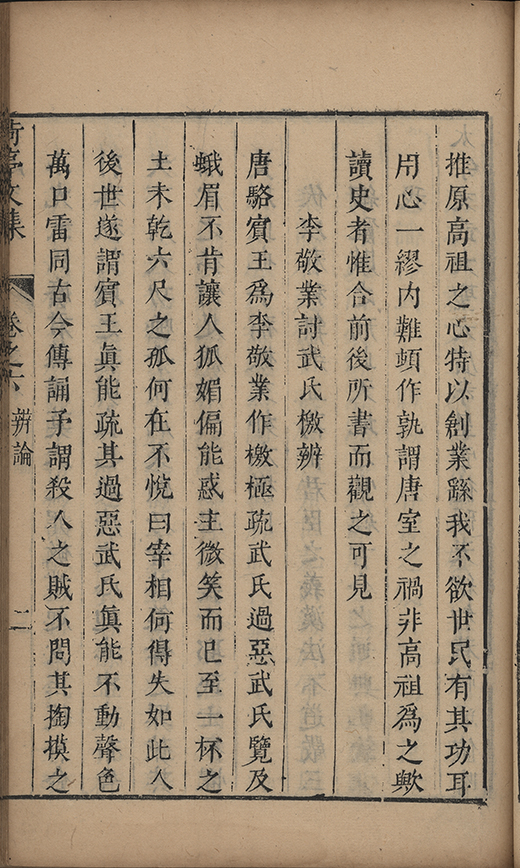 推原高祖之心特以創業繇我不欲世民有其功耳
用心一繆內難頓作孰謂唐室之禍非高祖爲之歟
讀史者惟合前後所書而觀之可見
李敬業討武氏檄辨
唐駱賓王爲李敬業作檄極疏武氏過惡武氏覽及
蛾眉不肯讓人狐媚偏能惑主微笑而已至一杯之
土未乾六尺之孤何在不悅曰宰相何得失如此人
後世遂謂賓王眞能疏其過惡武氏眞能不動聲色
萬口雷同古今傳誦予謂殺人之賊不問其掏摸之
亭文集
卷之六
辨論
二